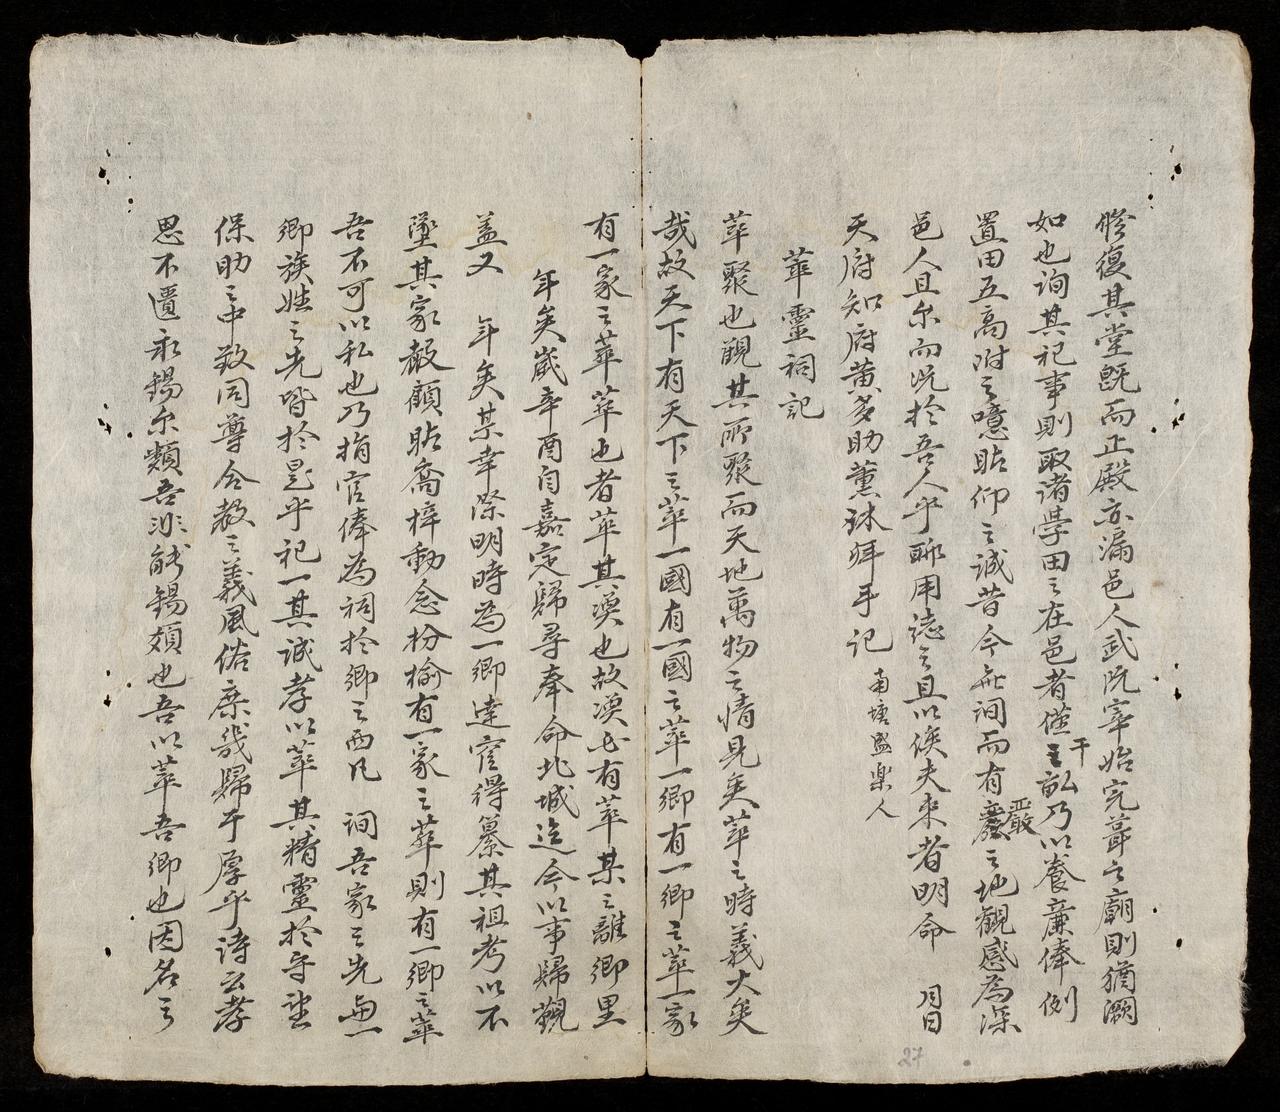 修復其堂既而正殿亦漏邑人武阮宰始完葺之廟則猶濶
如也詢其祀事則取諸學田之在邑者僅三畝乃以養廉俸例
干
置田五高附之噫貼仰之誠昔今無間而有嚴之地觀感為深
嚴
邑人且尔而况於吾人乎聊用誌之且以俟夫來者明命 月日
天府知府黄多助薰沐拜手記 南塘盛樂人
萃靈祠記
萃聚也觀其所聚而天地萬物之情見矣萃之時義大矣
哉故天下有天下之萃一國有一國之萃一鄉有一鄉之萃一家
有一家之萃萃也者萃其渙也故渙必有萃某之離鄉里
年矣歲辛酉自嘉定歸尋奉命北城迄今以事歸觀
盖又 年矣某幸際明時為一鄉達官得纂其祖考以不
墜其家毅顧貼喬梓動念枌榆有一家之萃則有一鄉之萃
吾不可以私也乃捐官俸為祠於鄉之西凡 詞吾家之先與一
鄉族姓之先皆於是乎祀一其誠孝以萃其精靈於守望
保助之中敦同尊合教之義風俗庶幾歸于厚乎詩云孝
思不匱永錫尔類吾非能錫類也吾以萃吾鄉也因名之